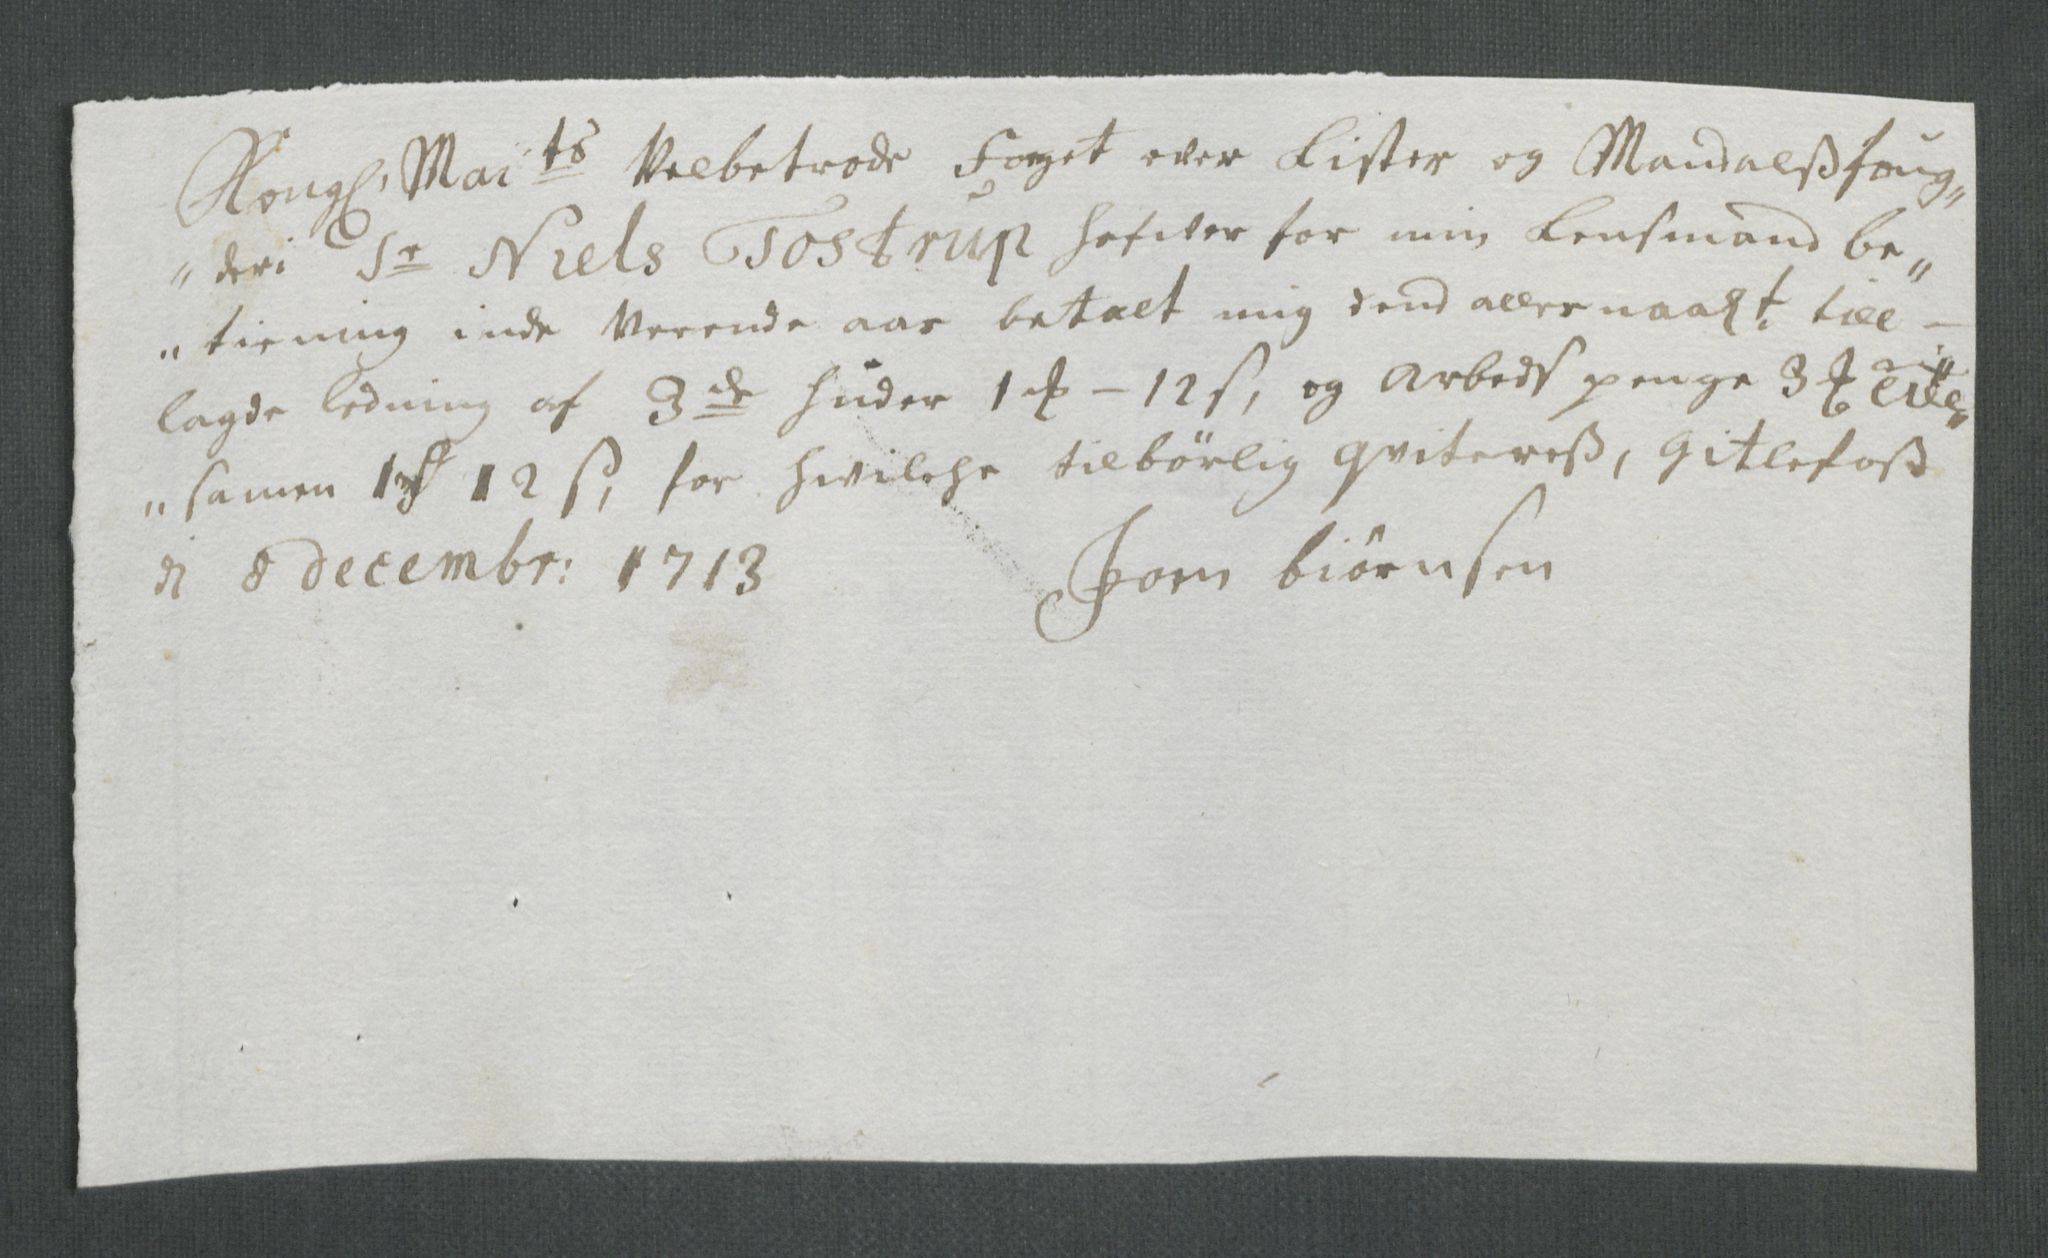 Kongl. Mai.ts Velbetrode Foget over Lister og Mandalßfoug„
„deri Sr Niels Tostrup hafver for min Lensmand be„
„tiening inde Verende aar betalt mig dend aller naadt. till —
lagde ledning af 3de huder 1 – 12 s, og Arbeds penge 3
„samen 12 s, for hvilche tilbörlig qviterets, Gitlefoss
d 8 decembr: 1713 Joen biörnsen